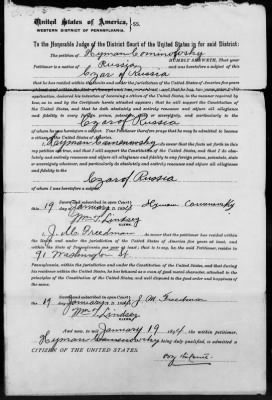 United States of America, } ss.
WESTERN DISTRICT OF PENNSYLVANIA.
To the Honorable Judge of the District Court of the United States in for said District:
The petition of Hyman Cominowsky
HUMBLY SHEWETH, That your
Petitioner is a native of Russia and was heretofore a subject of this
Czar of Russia
that he has resided within and under the jurisdiction of the United States of America five years
application, declared his intention of becoming a citizen of the United States, in the manner required by
law, as to and by the Certificate hereto attached appears; that he will support the Constitution of
the United States, and that he doth absolutely and entirely renounce and abjure all allegiance
and fidelity to any foreign prince, potentate, state or sovereignty whatever, and particularly to the
Czar of Russia
of whom he was before a subject. Your Petitioner therefore prays that he may be admitted to become
a citizen of the United States.
Hyman do swear that the facts set forth in this
my petition are true, and that I will support the Constitution of the United States, and that I do absolutely
and entirely renounce and abjure all allegiance and fidelity to any foreign prince, potentate, state
or sovereignty whatever, and particularly do absolutely and entirely renounce and abjure all allegiance
and fidelity to the
Czar of Russia
of whom I was heretofore a subject.
Sworn and subscribed in open Court
this 19 day of January A. D. 189 Hyman
Wm T Lindsey
CLERK.
J. M. Freedman do swear that the petitioner has resided within
the limits and under the jurisdiction of the United States of America five years at least, and
within the State of Pennsylvania one year at least; that is to say, he, the said Petitioner, resides in
91 Washington St.
Pennsylvania, within the jurisdiction and under the Constitution of the United States, and that during
his residence within the United States, he has behaved as a man of good moral character, attached to the
principles of the Constitution of the United States, and well disposed to the good order and happiness
of the same.
Sworn and subscribed in open Court
this 19 day of January A. D. 189 J. M. Freedman
Wm T Lindsey
CLERK.
And now, to wit: January 19 the within petitioner,
Hyman being duly qualified, is admitted a
CITIZEN OF THE UNITED STATES.